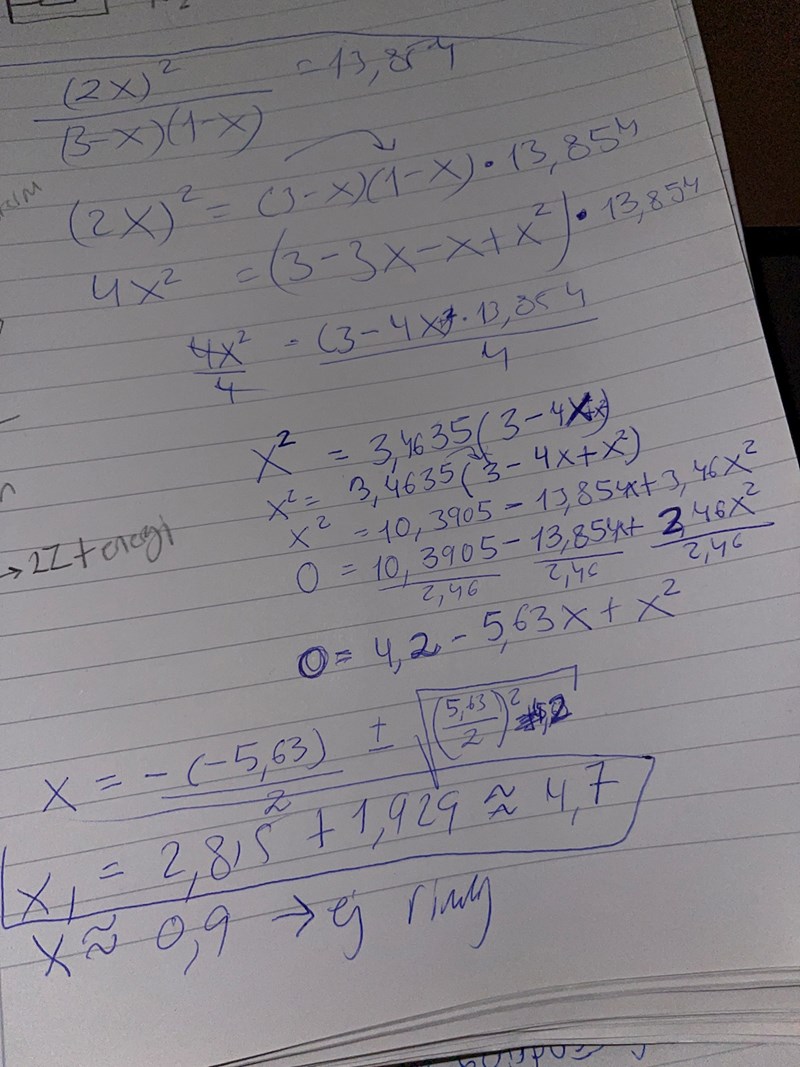 (2x)² / (3-x)(1-x) = 13,854
(2x)² = (3-x)(1-x) · 13,854
4x² = (3-3x-x+x²) · 13,854
4x²/4 = (3-4x+x² · 13,854/4
x² = 3,4635(3-4x+x²)
x² = 3,4635(3-4x+x²)
x² = 10,3905 - 13,854x + 3,46x²
→ 2Z + energi
0 = 10,3905/2,46 - 13,854x/2,46 + 2,46x²/2,46
0 = 4,2 - 5,63x + x²
x = -(-5,63)/2 ± √(5,63/2)² - 4,2
x₁ = 2,815 + 1,929 ≈ 4,7
x ≈ 0,9 → ej rimlig